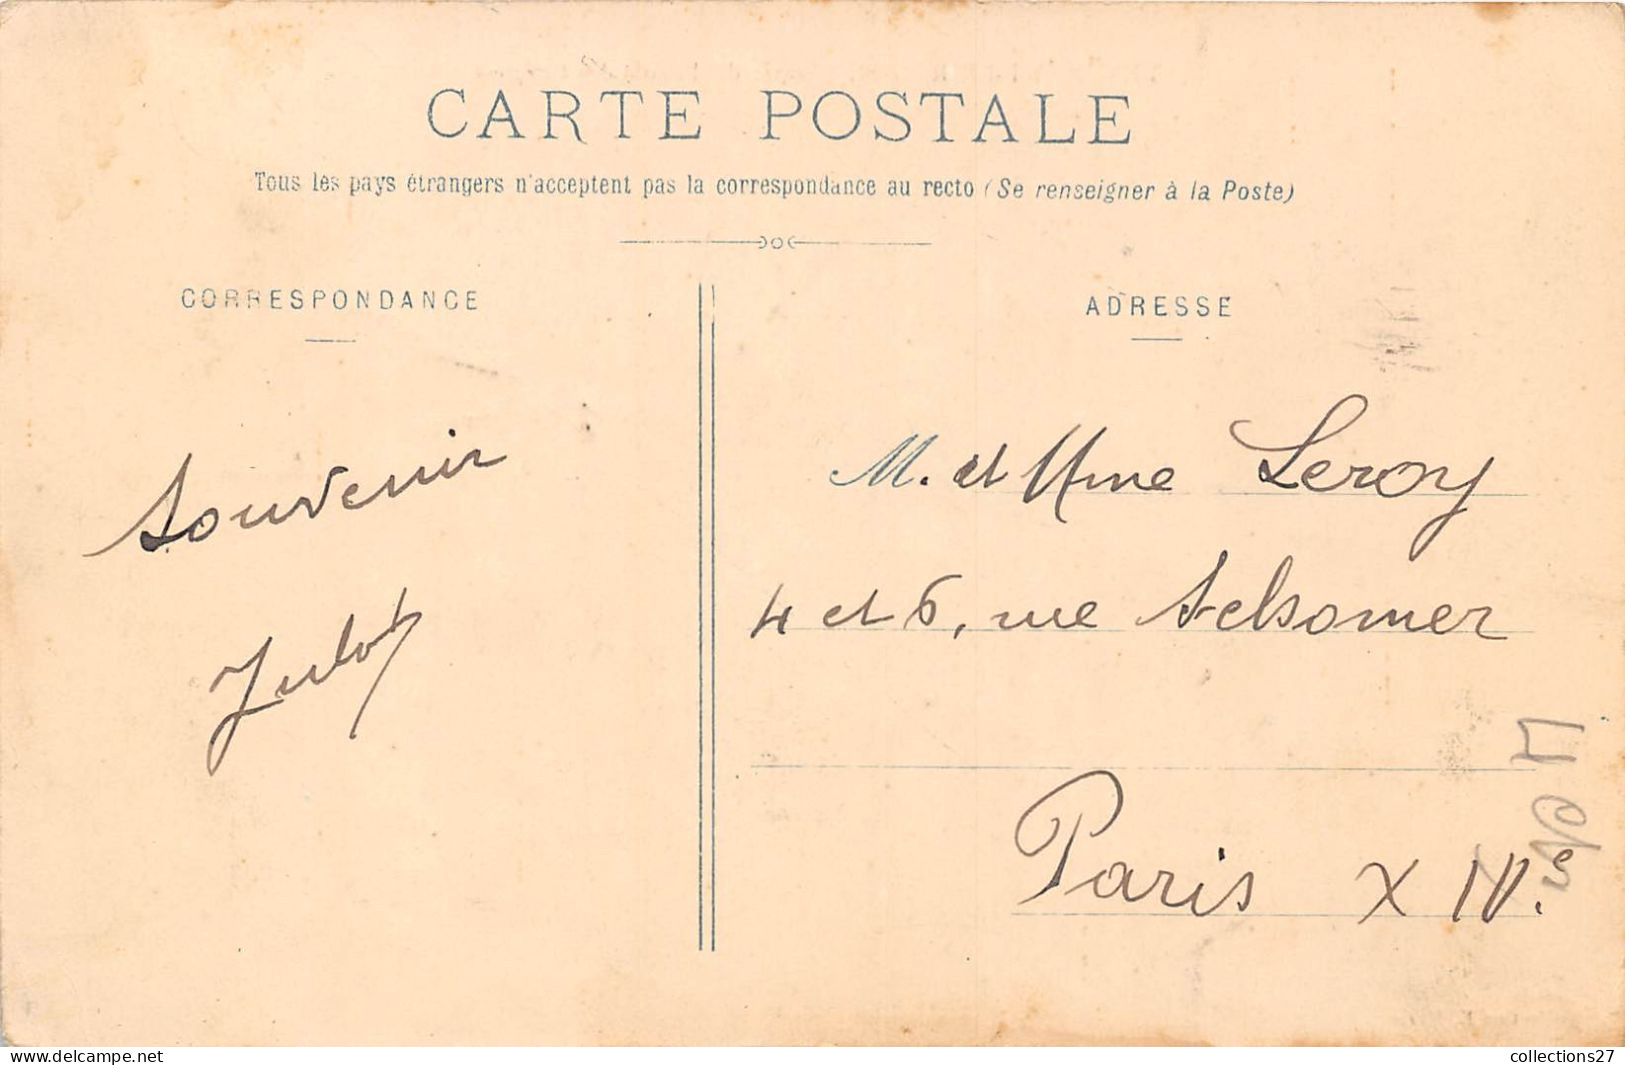 CARTE POSTALE
Tous les pays étrangers n'acceptent pas la correspondance au recto (Se renseigner à la Poste)
CORRESPONDANCE
ADRESSE
Souvenir
Julot
M. et Mme Leroy
4 et 6, rue Schomer
Paris XIVe.
collections27